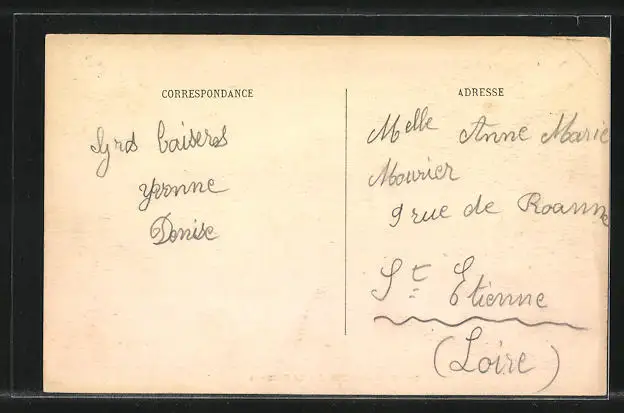 CORRESPONDANCE
Grs baisers
Yvonne
Denise
ADRESSE
Melle Anne Marie
Mourier
9 rue de Roanne
St Etienne
(Loire)